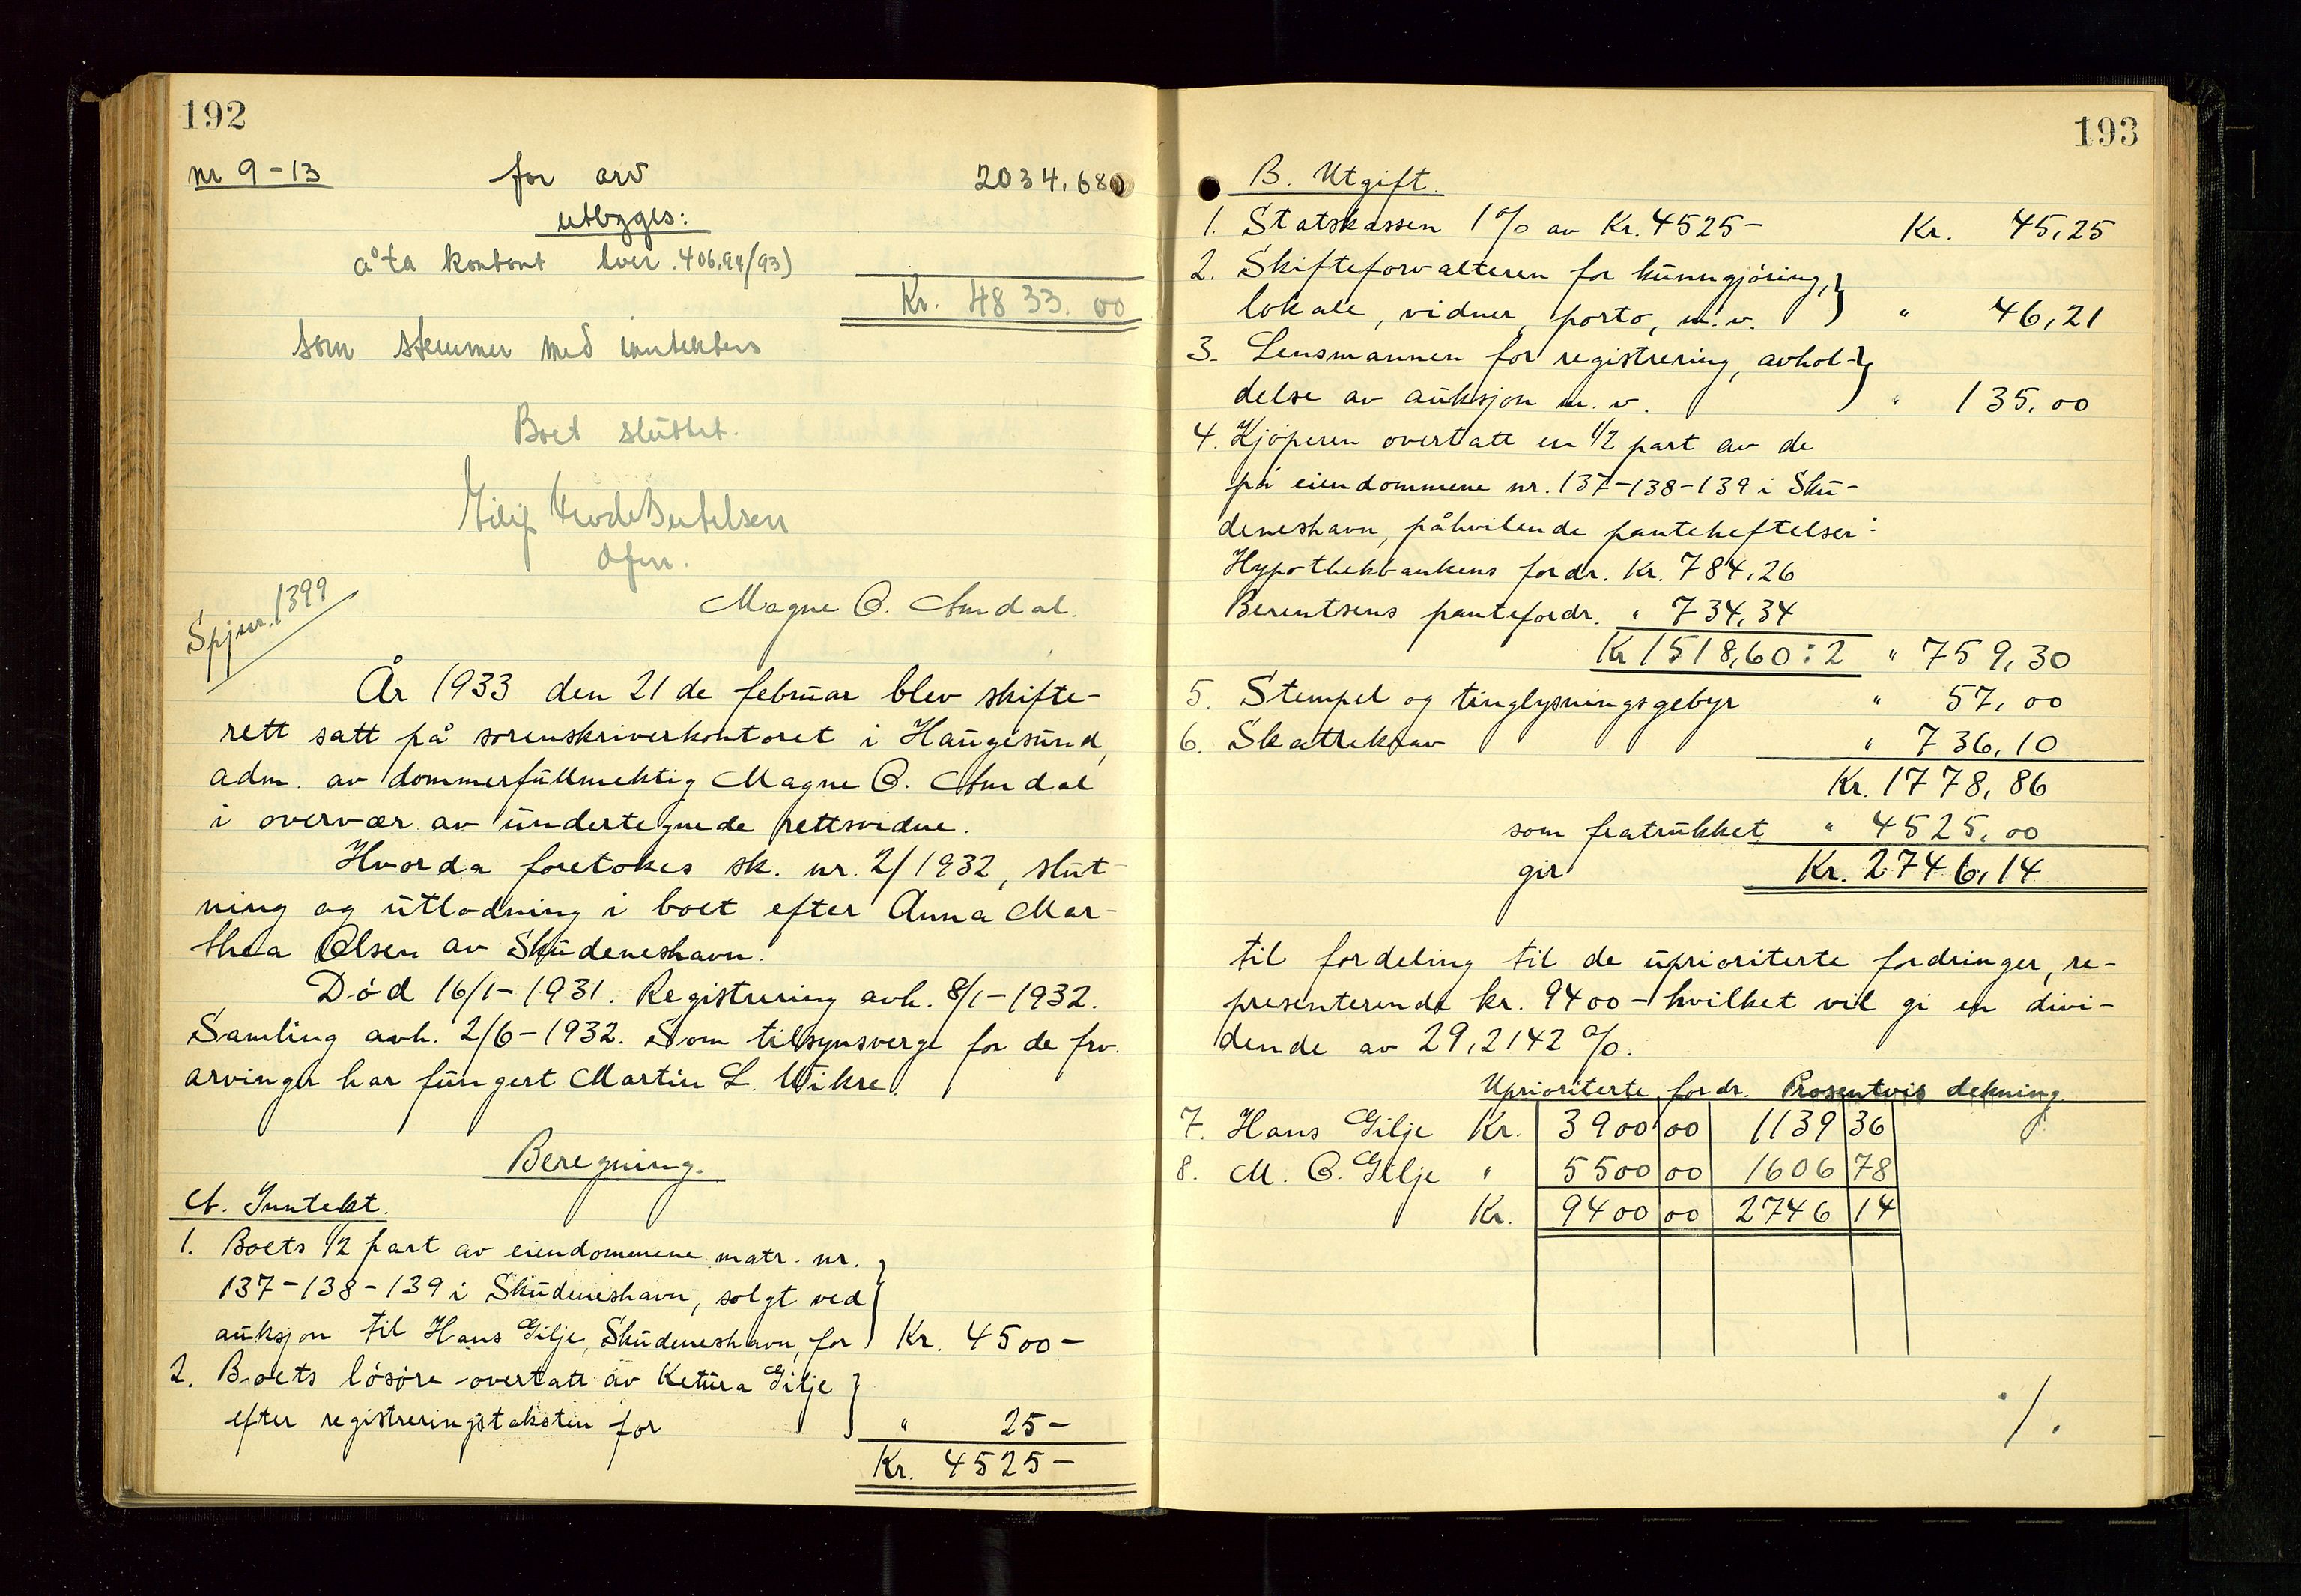 192
nr 9-13 for arv 2034,68
utbyges:
a°ta kontant hver 406,94/93)
Kr. 4833.00
som stemmer med inntekten
Boet sluttet.
Bertelsen
Ofm.
Magne O. Aurdal.
Spjnr. 1399
År 1933 den 21 de februar blev skifte-
rett satt på sorenskriverkontoret i Haugesund,
adm. av dommerfullmektig Magne O. Aurdal
i overvær av undertegnede rettsvidne.
Hvorda foretokes sk. nr. 2/1932, slut
ning og utlodning i boet efter Anna Mar-
thea Olsen av Skudeneshavn.
Död 16/1-1931. Registrering avh. 8/1-1932.
Samling avh. 2/6-1932. Som tilsynsverge for de frv.
arvinger har fungert Martin L. Wikre.
Beregning.
A. Inntekt.
1. Boets 1/2 part av eiendommene matr. nr.
137-138-139 i Skudeneshavn, solgt ved
auksjon til Hans Gilje, Skudeneshavn, for Kr. 4500-
2. Boets lösöre overtatt av Ketura Gilje
efter registreringstaksten for " 25-
Kr. 4525-
193
B. Utgift.
1. Statskassen 1% av Kr. 4525- Kr. 45,25
2. Skifteforvalteren for kunngjöring,
lokale, vidner, porto, m.v. " 46,21
3. Lensmannen for registrering, avhol-
delse av auksjon m.v. " 135,00
4. Kjöperen overtatt en 1/2 part av de
på eiendommene nr. 137-138-139 i Sku-
deneshavn, påhvilende panteheftelser:
Hypothekbankens fordr. Kr. 784,26
Berentsens pantefordr. " 734,34
Kr 1518,60:2 " 759,30
5. Stempel og tinglysningsgebyr " 57,00
6. Skattekrav " 736,10
Kr. 1778,86
som fratrukket " 4525,00
gir Kr. 2746,14
til fordeling til de uprioriterte fordringer, re-
presenterende kr. 9400- hvilket vil gi en divi-
dende av 29,2142 %.
Uprioriterte fordr. Prosentvis dekning
7. Hans Gilje Kr. 3900 00 1139 36
8. M. O. Gilje " 5500 00 1606 78
Kr. 9400 00 2746 14
./.